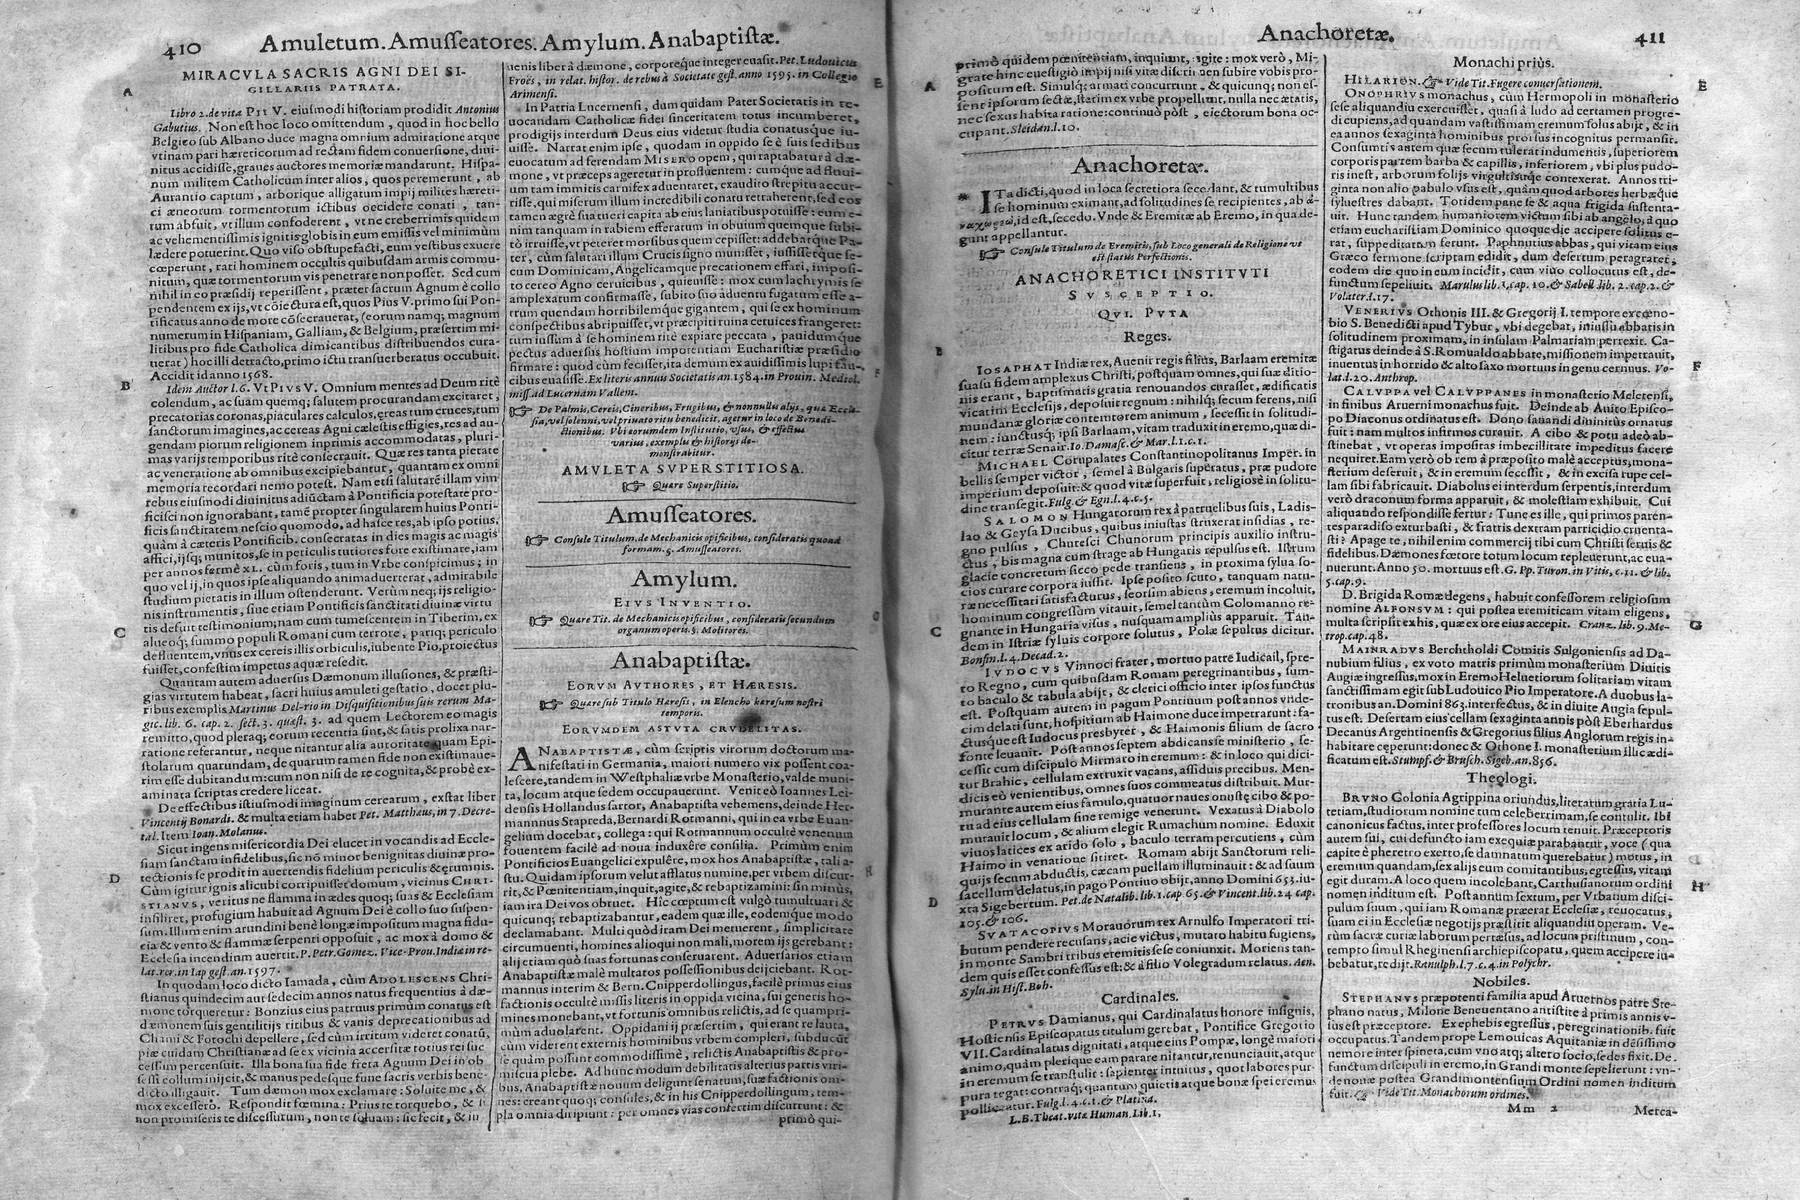 410 Amuletum. Amusseatores. Amylum. Anabaptistæ.
MIRACVLA SACRIS AGNI DEI SI-
GILLARIIS PATRATA.
Libro 2. de vita PII V. eiusmodi historiam prodidit Antonius
Gabutius. Non est hoc loco omittendum, quod in hoc bello
Belgico sub Albano duce magna omnium admiratione atque
vtinam pari hæreticorum ad rectam fidem conuersione, diui-
nitus accidisse, graues auctores memoriæ mandarunt. Hispa-
num militem Catholicum inter alios, quos peremerunt, ab
Aurantio captum, arborique alligatum impij milites hæreti-
ci æneorum tormentorum ictibus occidere conati, tan-
tum abfuit, vt illum confoderent, vt ne creberrimis quidem
ac vehementissimis ignitis globis in eum emissis vel minimùm
lædere potuerint. Quo viso obstupefacti, eum vestibus exuere
cœperunt, rati hominem occultis quibusdam armis commu-
nitum, quæ tormentorum vis penetrare non posset. Sed cum
nihil in eo præsidij reperissent, præter sacrum Agnum è collo
pendentem ex ijs, vt cōiectura est, quos Pius V. primo sui Pon-
tificatus anno de more cōsecrauerat, (eorum namq; magnum
numerum in Hispaniam, Galliam, & Belgium, præsertim mi-
litibus pro fide Catholica dimicantibus distribuendos cura-
uerat) hoc illi detracto, primo ictu transuerberatus occubuit.
Accidit id anno 1568.
Idem Auctor l. 6. Vt PIVS V. Omnium mentes ad Deum ritè
colendum, ac suam quemq; salutem procurandam excitaret,
precatorias coronas, piaculares calculos, ęreas tum cruces, tum
sanctorum imagines, ac cereas Agni cælestis effigies, res ad au-
gendam piorum religionem inprimis accommodatas, pluri-
mas varijs temporibus ritè consecrauit. Quæ res tanta pietate
ac veneratione ab omnibus excipiebantur, quantam ex omni
memoria recordari nemo potest. Nam etsi salutarē illam vim
rebus eiusmodi diuinitus adiūctam à Pontificia potestate pro-
ficisci non ignorabant, tamē propter singularem huius Ponti-
ficis sanctitatem nescio quomodo, ad hasce res, ab ipso potius,
quàm à cæteris Pontificib. consecratas in dies magis ac magis
affici, ijsq; munitos, se in periculis tutiores fore existimare, iam
per annos fermè XL. cùm foris, tum in Vrbe conspicimus; in
quo vel ij, in quos ipse aliquando animaduerterat, admirabile
studium pietatis in illum ostenderunt. Verùm neq; ijs religio-
nis instrumentis, siue etiam Pontificis sanctitati diuinæ virtu
tis defuit testimonium; nam cum tumescentem in Tiberim, ex
alueoq; summo populi Romani cum terrore, pariq; periculo
defluentem, vnus ex cereis illis orbiculis, iubente Pio, proiectus
fuisset, confestim impetus aquæ resedit.
Quantam autem aduersus Dæmonum illusiones, & præsti-
gias virtutem habeat, sacri huius amuleti gestatio, docet plu-
ribus exemplis Martinus Del-rio in Disquisitionibus suis rerum Ma-
gic. lib. 6. cap. 2. sect. 3. quæst. 3. ad quem Lectorem eo magis
remitto, quod pleraq; eorum recentia sint, & satis prolixa nar-
ratione referantur, neque nitantur alia autoritate quam Epi-
stolarum quarundam, de quarum tamen fide non existimaue-
rim esse dubitandum: cum non nisi de re cognita, & probè ex-
aminata scriptas credere liceat.
De effectibus istiusmodi imaginum cerearum, exstat liber
Vincentij Bonardi. & multa etiam habet Pet. Matthæus, in 7. Decre-
tal. Item Ioan. Molanus.
Sicut ingens misericordia Dei elucet in vocandis ad Eccle-
siam sanctam infidelibus, sic nō minor benignitas diuinæ pro-
tectionis se prodit in auertendis fidelium periculis & ęrumnis.
Cùm igitur ignis alicubi corripuisset domum, vicinus CHRI-
STIANVS, veritus ne flamma in ædes quoq; suas & Ecclesiam
insiliret, profugium habuit ad Agnum Dei è collo suo suspen-
sum. Illum enim arundini benè longæ impositum magna fidu-
cia & vento & flammæ serpenti opposuit, ac mox à domo &
Ecclesia incendium auertit. P. Petr. Gomez. Vice-Prou. Indiæ in re-
lat. rer. in Iap gest. an. 1597.
In quodam loco dicto Iamada, cùm ADOLESCENS Chri-
stianus quindecim aut sedecim annos natus frequentius à dæ-
mone torqueretur: Bonzius eius patruus primùm conatus est
dæmonem suis gentilitijs ritibus & vanis deprecationibus ad
Chami & Fotochi depellere, sed cùm irritum videret conatū,
piæ cuidam Christianæ ad se ex vicinia accersitæ totius rei suc
cessum percensuit. Illa bona sua fide freta Agnum Dei in ob
sessi collum inijcit, & manus pedesque fune sacris verbis bene-
dicto illigauit. Tum dæmon mox exclamare: Soluite me, &
mox excessero. Respondit fœmina: Prius te torquebo, & ni
non promiseris te discessurum, non te soluam: sic fecit, & iu
uenis liber à dæmone, corporeque integer euasit. Pet. Ludouicus
Froës, in relat. histor. de rebus à Societate gest. anno 1595. in Collegio
Arimensi.
In Patria Lucernensi, dum quidam Pater Societatis in re-
uocandam Catholicæ fidei sinceritatem totus incumberet,
prodigijs interdum Deus eius videtur studia conatusque iu-
uisse. Narrat enim ipse, quodam in oppido se è suis sedibus
euocatum ad ferendam MISERO opem, qui raptabatur à dæ-
mone, vt præceps ageretur in profluentem: cumque ad fluui-
um tam immitis carnifex aduentaret, exaudito strepitu accur-
risse, qui miserum illum incredibili conatu retraherent, sed eos
tamen ægrè sua tueri capita ab eius laniatibus potuisse: eum e-
nim tanquam in rabiem efferatum in obuium quemque subi-
tò irruisse, vt peteret morsibus quem cepisset: addebatque Pa-
ter, cùm salutari illum Crucis signo munisset, iussissetque se-
cum Dominicam, Angelicamque precationem effari, imposi-
to cereo Agno ceruicibus, quieuisse: mox cum lachrymis se
amplexatum confirmasse, subito suo aduentu fugatum esse a-
trum quendam horribilemque gigantem, qui se ex hominum
conspectibus abripuisset, vt præcipiti ruina ceruices frangeret:
tum iussum à se hominem ritè expiare peccata, pauidumque
pectus aduersus hostium impotentiam Eucharistiæ præsidio
firmare: quod cùm fecisset, ita demum ex auidissimis lupi fau-
cibus euasisse. Ex literis annuis Societatis an. 1584. in Prouin. Mediol.
miss. ad Lucernam Vallem.
De Palmis, Cereis, Cineribus, Frugibus, & nonnullis alijs, quæ Eccle-
sia, vel solenni, vel priuato ritu benedicit, agetur in loco de Benedi-
ctionibus. Vbi eorumdem Institutio, vsus, & effectus
varius, exemplis & historijs de-
monstrabitur.
AMVLETA SVPERSTITIOSA.
Quære Superstitio.
Amusseatores.
Consule Titulum. de Mechanicis opificibus, consideratis quoad
formam. §. Amusseatores.
Amylum.
EIVS INVENTIO.
Quære Tit. de Mechanicis opificibus, consideratis secundum
organum operis. §. Molitores.
Anabaptistæ.
EORVM AVTHORES, ET HÆRESIS.
Quære sub Titulo Hæresis, in Elencho hæresum nostri
temporis.
EORVMDEM ASTVTA CRVDELITAS.
ANABAPTISTÆ, cùm scriptis virorum doctorum ma-
nifestati in Germania, maiori numero vix possent coa-
lescere, tandem in Westphaliæ vrbe Monasterio, valde muni-
ta, locum atque sedem occupauerunt. Venit eò Ioannes Lei-
densis Hollandus sartor, Anabaptista vehemens, deinde Her-
mannnus Stapreda, Bernardi Rotmanni, qui in ea vrbe Euan-
gelium docebat, collega: qui Rotmannum occultè venenum
fouentem facilè ad noua induxêre consilia. Primùm enim
Pontificios Euangelici expulêre, mox hos Anabaptistæ, tali a-
stu. Quidam ipsorum velut afflatus numine, per vrbem discur-
rit, & Pœnitentiam, inquit, agite, & rebaptizamini: sin minus,
iam ira Dei vos obruet. Hic cœptum est vulgò tumultuari &
quicunq; rebaptizabantur, eadem quæ ille, eodemque modo
declamabant. Multi quòd iram Dei metuerent, simplicitate
circumuenti, homines alioqui non mali, morem ijs gerebant:
alij etiam quò suas fortunas conseruarent. Aduersarios etiam
Anabaptistæ malè multatos possessionibus deijciebant. Rot-
mannus interim & Bern. Cnipperdollingus, facilè primus eius
factionis occultè missis literis in oppida vicina, sui generis ho-
mines monebant, vt fortunis omnibus relictis, ad se quampri-
mùm aduolarent. Oppidani ij præsertim, qui erant re lauta,
cùm viderent externis hominibus vrbem compleri, subducūt
se quàm possunt commodissimè, relictis Anabaptistis & pro-
miscua plebe. Ad hunc modum debilitatis alterius partis viri-
bus, Anabaptistæ nouum deligunt senatum, suæ factionis om-
nes: creant quoq; consules, & in his Cnipperdollingum, tem-
pla omnia diripiunt: per omnes vias confertim discurrunt: &
primò qui-
A
B
C
D
E
F
G
H
Anachoretæ. 411
primò quidem pœnitentiam, inquiunt, agite: mox verò, Mi-
grate hinc euestigiò impij nisi vitæ discrimen subire vobis pro-
positum est. Simulq; armati concurrunt, & quicunq; non es-
sent ipsorum sectæ, statim ex vrbe propellunt, nulla nec ætatis,
nec sexus habita ratione: continuò pòst, eiectorum bona oc-
cupant. Sleidan. l. 10.
Anachoretæ.
* ITa dicti, quod in loca secretiora secedant, & tumultibus
se hominum eximant, ad solitudines se recipientes, ab ἀ-
ναχωρέω, id est, secedo. Vnde & Eremitæ ab Eremo, in qua de-
gunt appellantur.
Consule Titulum de Eremitis, sub Loco generali de Religione vt
est status Perfectionis.
ANACHORETICI INSTITVTI
SVSCEPTIO.
QVI. PVTA
Reges.
IOSAPHAT Indiæ rex, Auenir regis filius, Barlaam eremitæ
suasu fidem amplexus Christi, postquam omnes, qui suæ ditio-
nis erant, baptismatis gratia renouandos curasset, ædificatis
vicatim Ecclesijs, deposuit regnum: nihilq; secum ferens, nisi
mundanæ gloriæ contentorem animum, secessit in solitudi-
nem: iunctusq; ipsi Barlaam, vitam traduxit in eremo, quæ di-
citur terræ Senair. Io. Damasc. & Mar. l. 1. c. 1.
MICHAEL Coropalates Constantinopolitanus Imper. in
bellis semper victor, semel à Bulgaris superatus, præ pudore
imperium deposuit: & quod vitæ superfuit, religiosè in solitu-
dine transegit. Fulg. & Egn. l. 4. c. 5.
SALOMON Hungarorum rex à patruelibus suis, Ladis-
lao & Geysa Ducibus, quibus iniustas struxerat insidias, re-
gno pulsus, Chutesci Chunorum principis auxilio instru-
ctus, bis magna cum strage ab Hungaris repulsus est. Istrum
glacie concretum sicco pede transiens, in proxima sylua so-
cios curare corpora iussit. Ipse posito scuto, tanquam natu-
ræ necessitati satisfacturus, seorsim abiens, eremum incoluit,
hominum congressum vitauit, semel tantùm Colomanno re-
gnante in Hungaria visus, nusquam ampliùs apparuit. Tan-
dem in Istriæ syluis corpore solutus, Polæ sepultus dicitur.
Bonfin. l. 4. Decad. 2.
IVDOCVS Vinnoci frater, mortuo patre Iudicail, spre-
to Regno, cum quibusdam Romam peregrinantibus, sum-
to baculo & tabula abijt, & clerici officio inter ipsos functus
est. Postquam autem in pagum Pontinum post annos vnde-
cim delati sunt, hospitium ab Haimone duce impetrarunt: fa-
ctusque est Iudocus presbyter, & Haimonis filium de sacro
fonte leuauit. Post annos septem abdicans se ministerio, se-
cessit cum discipulo Mirmaro in eremum: & in loco qui dici-
tur Brahic, cellulam extruxit vacans, assiduis precibus. Men-
dicis eò venientibus, omnes suos commeatus distribuit. Mur-
murante autem eius famulo, quatuor naues onustę cibo & po-
tu ad eius cellulam sine remige venerunt. Vexatus à Diabolo
mutauit locum, & alium elegit Rumachum nomine. Eduxit
viuos latices ex arido solo, baculo terram percutiens, cùm
Haimo in venatione sitiret. Romam abijt Sanctorum reli-
quijs secum abductis, cæcam puellam illuminauit: & ad suum
sacellum delatus, in pago Pontiuo obijt, anno Domini 653. iu-
xta Sigebertum. Pet. de Natalib. lib. 1. cap 65. & Vincent. lib. 24 cap.
105. & 106.
SVATACOPIVS Morauorum rex Arnulfo Imperatori tri-
butum pendere recusans, acie victus, mutato habitu fugiens,
in monte Sambri tribus eremitis sese coniunxit. Moriens tan-
dem quis esset confessus est: & à filio Volegradum relatus. Aen.
Sylu. in Hist. Boh.
Cardinales.
PETRVS Damianus, qui Cardinalatus honore insignis,
Hostiensis Episcopatus titulum gerebat, Pontifice Gregorio
VII. Cardinalatus dignitati, atque eius Pompæ, longè maiori
animo, quàm plerique eam parare nitantur, renunciauit, atque
in eremum se transtulit: sapienter intuitus, quot labores pur-
pura tegat: contraq; quantùm quietis atque bonæ spei eremus
polliceatur. Fulg. l. 4. c. 1. & Platina.
L. B. Theat. vitæ Human. Lib. 1.
Monachi priùs.
HILARION. Vide Tit. Fugere conuersationem.
ONOPHRIVS monachus, cùm Hermopoli in monasterio
sese aliquandiu exercuisset, quasi à ludo ad certamen progre-
di cupiens, ad quandam vastissimam eremum solus abijt, & in
ea annos sexaginta hominibus prorsus incognitus permansit.
Consumtis autem quæ secum tulerat indumentis, superiorem
corporis partem barba & capillis, inferiorem, vbi plus pudo-
ris inest, arborum folijs virgultisuque contexerat. Annos tri-
ginta non alio pabulo vsus est, quàm quod arbores herbæque
syluestres dabant. Totidem pane se & aqua frigida sustenta-
uit. Hunc tandem humaniorem victum sibi ab angelo, à quo
etiam eucharistiam Dominico quoque die accipere solitus e-
rat, suppeditatum ferunt. Paphnutius abbas, qui vitam eius
Græco sermone scriptam edidit, dum desertum peragraret,
eodem die quo in eum incidit, cum viuo collocutus est, de-
functum sepeliuit. Marulus lib. 1. cap. 10. & Sabell lib. 2. cap. 2. &
Volater. l. 17.
VENERIVS Othonis III. & Gregorij I. tempore ex cœno-
bio S. Benedicti apud Tybur, vbi degebat, iniussu abbatis in
solitudinem proximam, in insulam Palmariam perrexit. Ca-
stigatus deinde à S. Romualdo abbate, missionem impetrauit,
inuentus in horrido & alto saxo mortuus in genu cernuus. Vo-
lat. l. 20. Anthrop.
CALVPPA vel CALVPPANES in monasterio Meletensi,
in finibus Aruerni monachus fuit. Deinde ab Auito Episco-
po Diaconus ordinatus est. Dono sanandi diuinitùs ornatus
fuit: nam multos infirmos curauit. A cibo & potu adeò ab-
stinebat, vt operas impositas imbecillitate impeditus facere
nequiret. Eam verò ob rem à præposito malè acceptus, mona-
sterium deseruit, & in eremum secessit, & in excisa rupe cel-
lam sibi fabricauit. Diabolus ei interdum serpentis, interdum
verò draconum forma apparuit, & molestiam exhibuit. Cui
aliquando respondisse fertur: Tune es ille, qui primos paren-
tes paradiso exturbasti, & fratris dextram parricidio cruenta-
sti? Apage te, nihil enim commercij tibi cum Christi seruis &
fidelibus. Dæmones fœtore totum locum repleuerunt, ac eua-
nuerunt. Anno 50. mortuus est. G. Pp. Turon. in Vitis, c. 11. & lib.
5. cap. 9.
D. Brigida Romæ degens, habuit confessorem religiosum
nomine ALFONSVM: qui postea eremiticam vitam eligens,
multa scripsit exhis, quæ ex ore eius accepit. Cranz. lib. 9. Me-
trop. cap. 48.
MAINRADVS Berchtholdi Comitis Sulgoniensis ad Da-
nubium filius, ex voto matris primùm monasterium Diuitis
Augiæ ingressus, mox in Eremo Heluetiorum solitariam vitam
sanctissimam egit sub Ludouico Pio Imperatore. A duobus la-
tronibus an. Domini 863. interfectus, & in diuite Augia sepul-
tus est. Desertam eius cellam sexaginta annis pòst Eberhardus
Decanus Argentinensis & Gregorius filius Anglorum regis in-
habitare cęperunt: donec & Othone I. monasterium illic ædi-
ficatum est. Stumpf. & Brusch. Sigeb. an. 856.
Theologi.
BRVNO Colonia Agrippina oriundus, literarum gratia Lu-
tetiam, studiorum nomine tum celeberrimam, se contulit. Ibi
canonicus factus, inter professores locum tenuit. Præceptoris
autem sui, cui defuncto iam exequiæ parabantur, voce (qua
capite è pheretro exerto, se damnatum querebatur) motus, in
eremum quandam, sex alijs eum comitantibus, egressus, vitam
egit duram. A loco quem incolebant, Carthusianorum ordini
nomen inditum est. Post annum sextum, per Vrbanum disci-
pulum suum, qui iam Romanæ præerat Ecclesiæ, reuocatus,
suam ei in Ecclesiæ negotijs præstitit aliquandiu operam. Ve-
rùm sacræ curiæ laborum pertæsus, ad locum pristinum, con-
tempto simul Rheginensi archiepiscopatu, quem accipere iu-
bebatur, redijt. Ranulph. l. 7. c. 4. in Polychr.
Nobiles.
STEPHANVS præpotenti familia apud Aruernos patre Ste-
phano natus, Milone Beneuentano antistite à primis annis v-
sus est præceptore. Ex ephebis egressus, peregrinationib. fuit
occupatus. Tandem prope Lemouicas Aquitaniæ in dēsissimo
nemore inter spineta, cum vno atq; altero socio, sedes fixit. De-
functum discipuli in eremo, in Grandi monte sepelierunt: vn-
de nonæ postea Grandimontensium Ordini nomen inditum
fuit. Vide Tit. Monachorum ordines.
Mm 2 Merca-
A
B
C
D
E
F
G
H